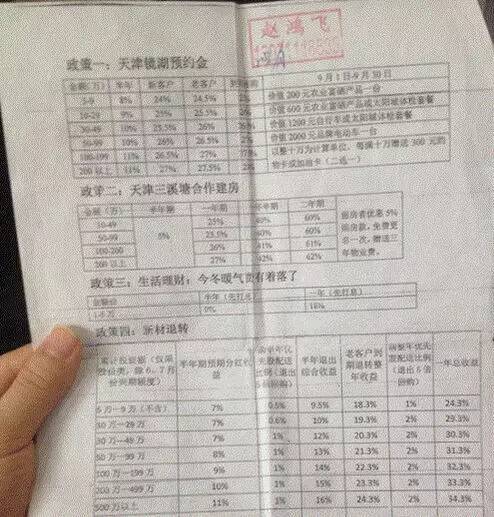 赵鸿飞
政策一：天津镜湖预约金
金额(万) 半年 新客户 老客户 9月1日-9月30日
5-9 8% 24% 24.5% 2% 价值200元农业富硒产品一份
10-29 9% 25% 25.5% 2% 价值600元农业富硒产品或太阳城体检套餐
30-49 10% 25.5% 26% 价值1200元自行车或太阳城体检套餐
50-99 10% 26% 26.5% 2% 价值2000元品牌电动车一台
100-199 11% 26.5% 27% 以整十万为计算单位，每满十万赠送300元的
200以上 11% 27% 27.5% 购物卡或加油卡（二选一）
政策二：天津三溪塘合作建房
金额（万） 半年期 一年期 一年半期 二年期
10-49 5% 25% 40% 60%
50-99 25.5% 60%
100-200 26% 41% 61%
200以上 27% 42% 62%
购房者优惠5%
购房款，免费更
名一次，赠送三
年物业费。
政策三：生活理财：今冬暖气费有着落了
半年（先打息） 一年（先打息）
政策四：新材退转
累计投资额（仅限
股份类，除6、7月
份兑期额度）
半年期预期分红收益
半年退出综合收益
老客户到期退转整年收益
前整年优先股配送比例（退出5倍回购）
一年总收益
5万-9万（不含） 7% 0.5% 9.5% 18.3% 1% 24.3%
10万-29万 7% 0.6% 10% 19.3% 2% 29.3%
30万-49万 7% 1% 12% 20.3% 2% 30.3%
50万-99万 8% 1% 13% 21.3% 2% 31.3%
100万-199万 9% 1% 14% 22.3% 2% 32.3%
200万-499万 10% 1% 15% 23.3% 2% 33.3%
500万以上 11% 1% 16% 24.3% 2% 34.3%